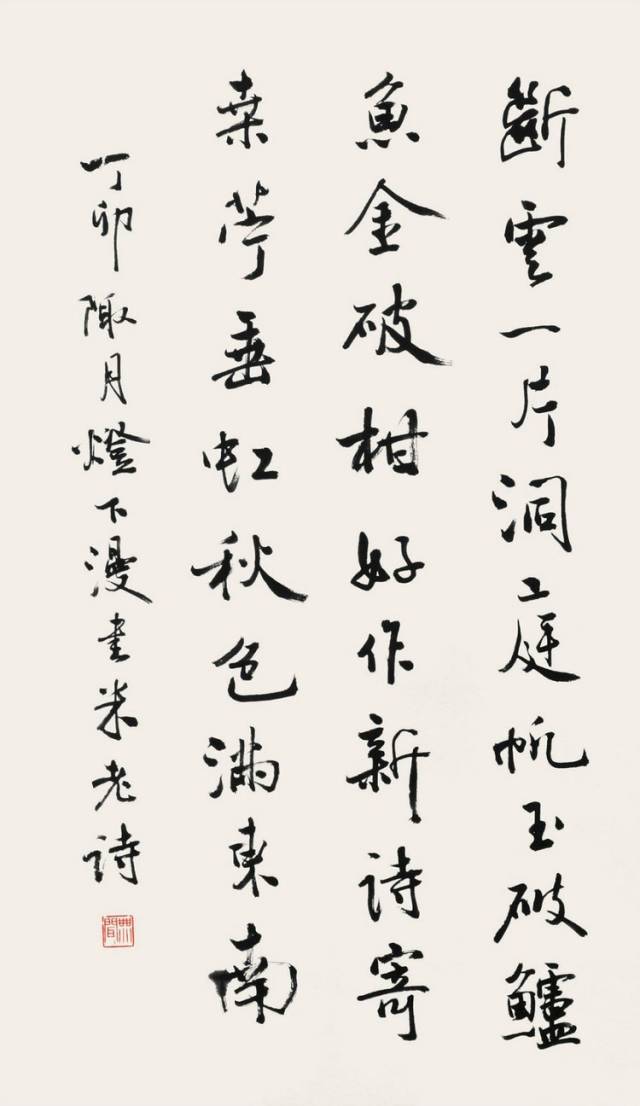 斷雲一片洞庭帆玉破鱸
魚金破柑好作新詩寄
桒苧垂虹秋色滿東南
丁卯陬月燈下漫書米老詩